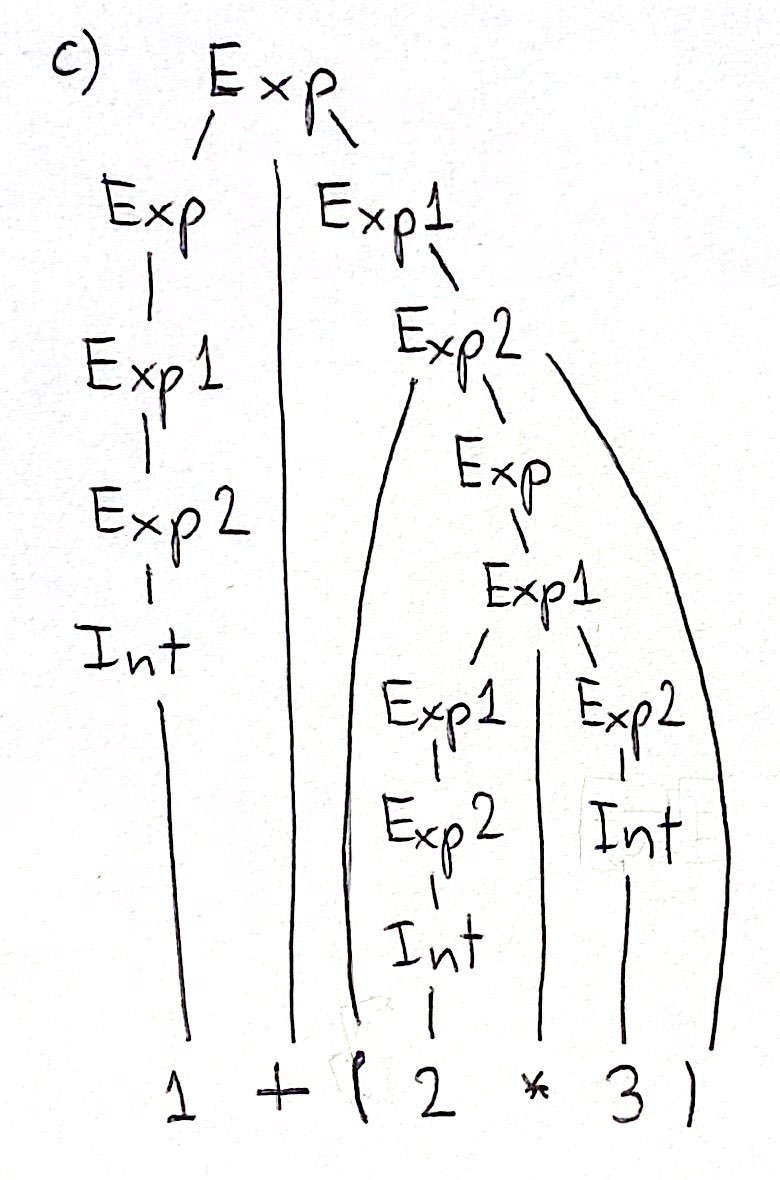 c) Exp
Exp Exp1
Exp1 Exp2
Exp
Exp2
Exp1
Int
Exp1 Exp2
Exp2 Int
Int
1 + ( 2 * 3 )